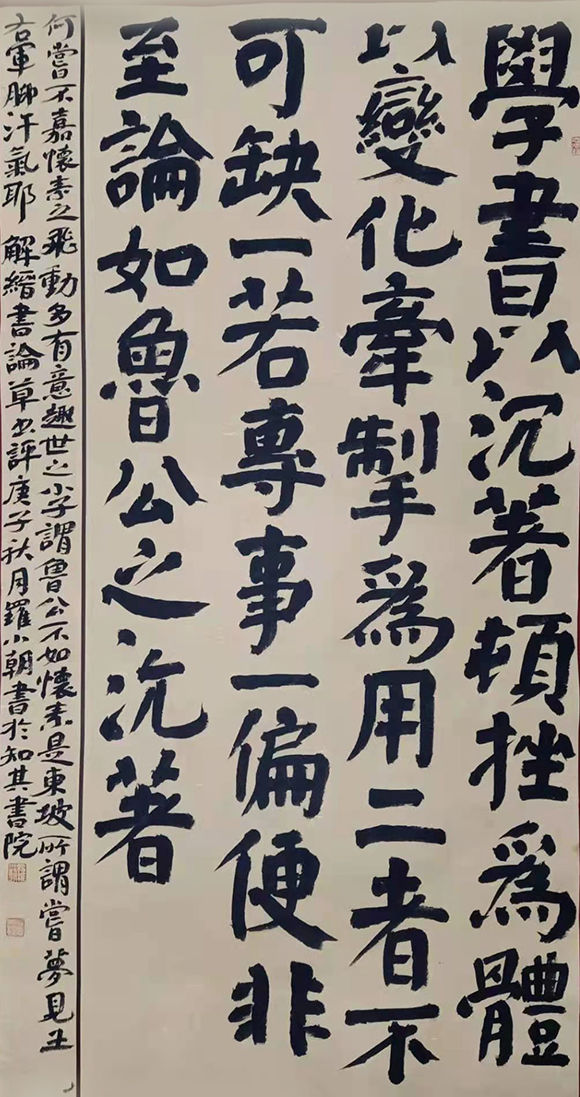 學書以沉著頓挫爲體
以變化牽掣爲用二者不
可缺一若專事一偏便非
至論如魯公之沉著
何嘗不嘉懷素之飛動多有意趣世之小子謂魯公不如懷素是東坡所謂嘗夢見王
右軍腳汗氣耶 解縉書論草書評庚子秋月羅小朝書於知其書院